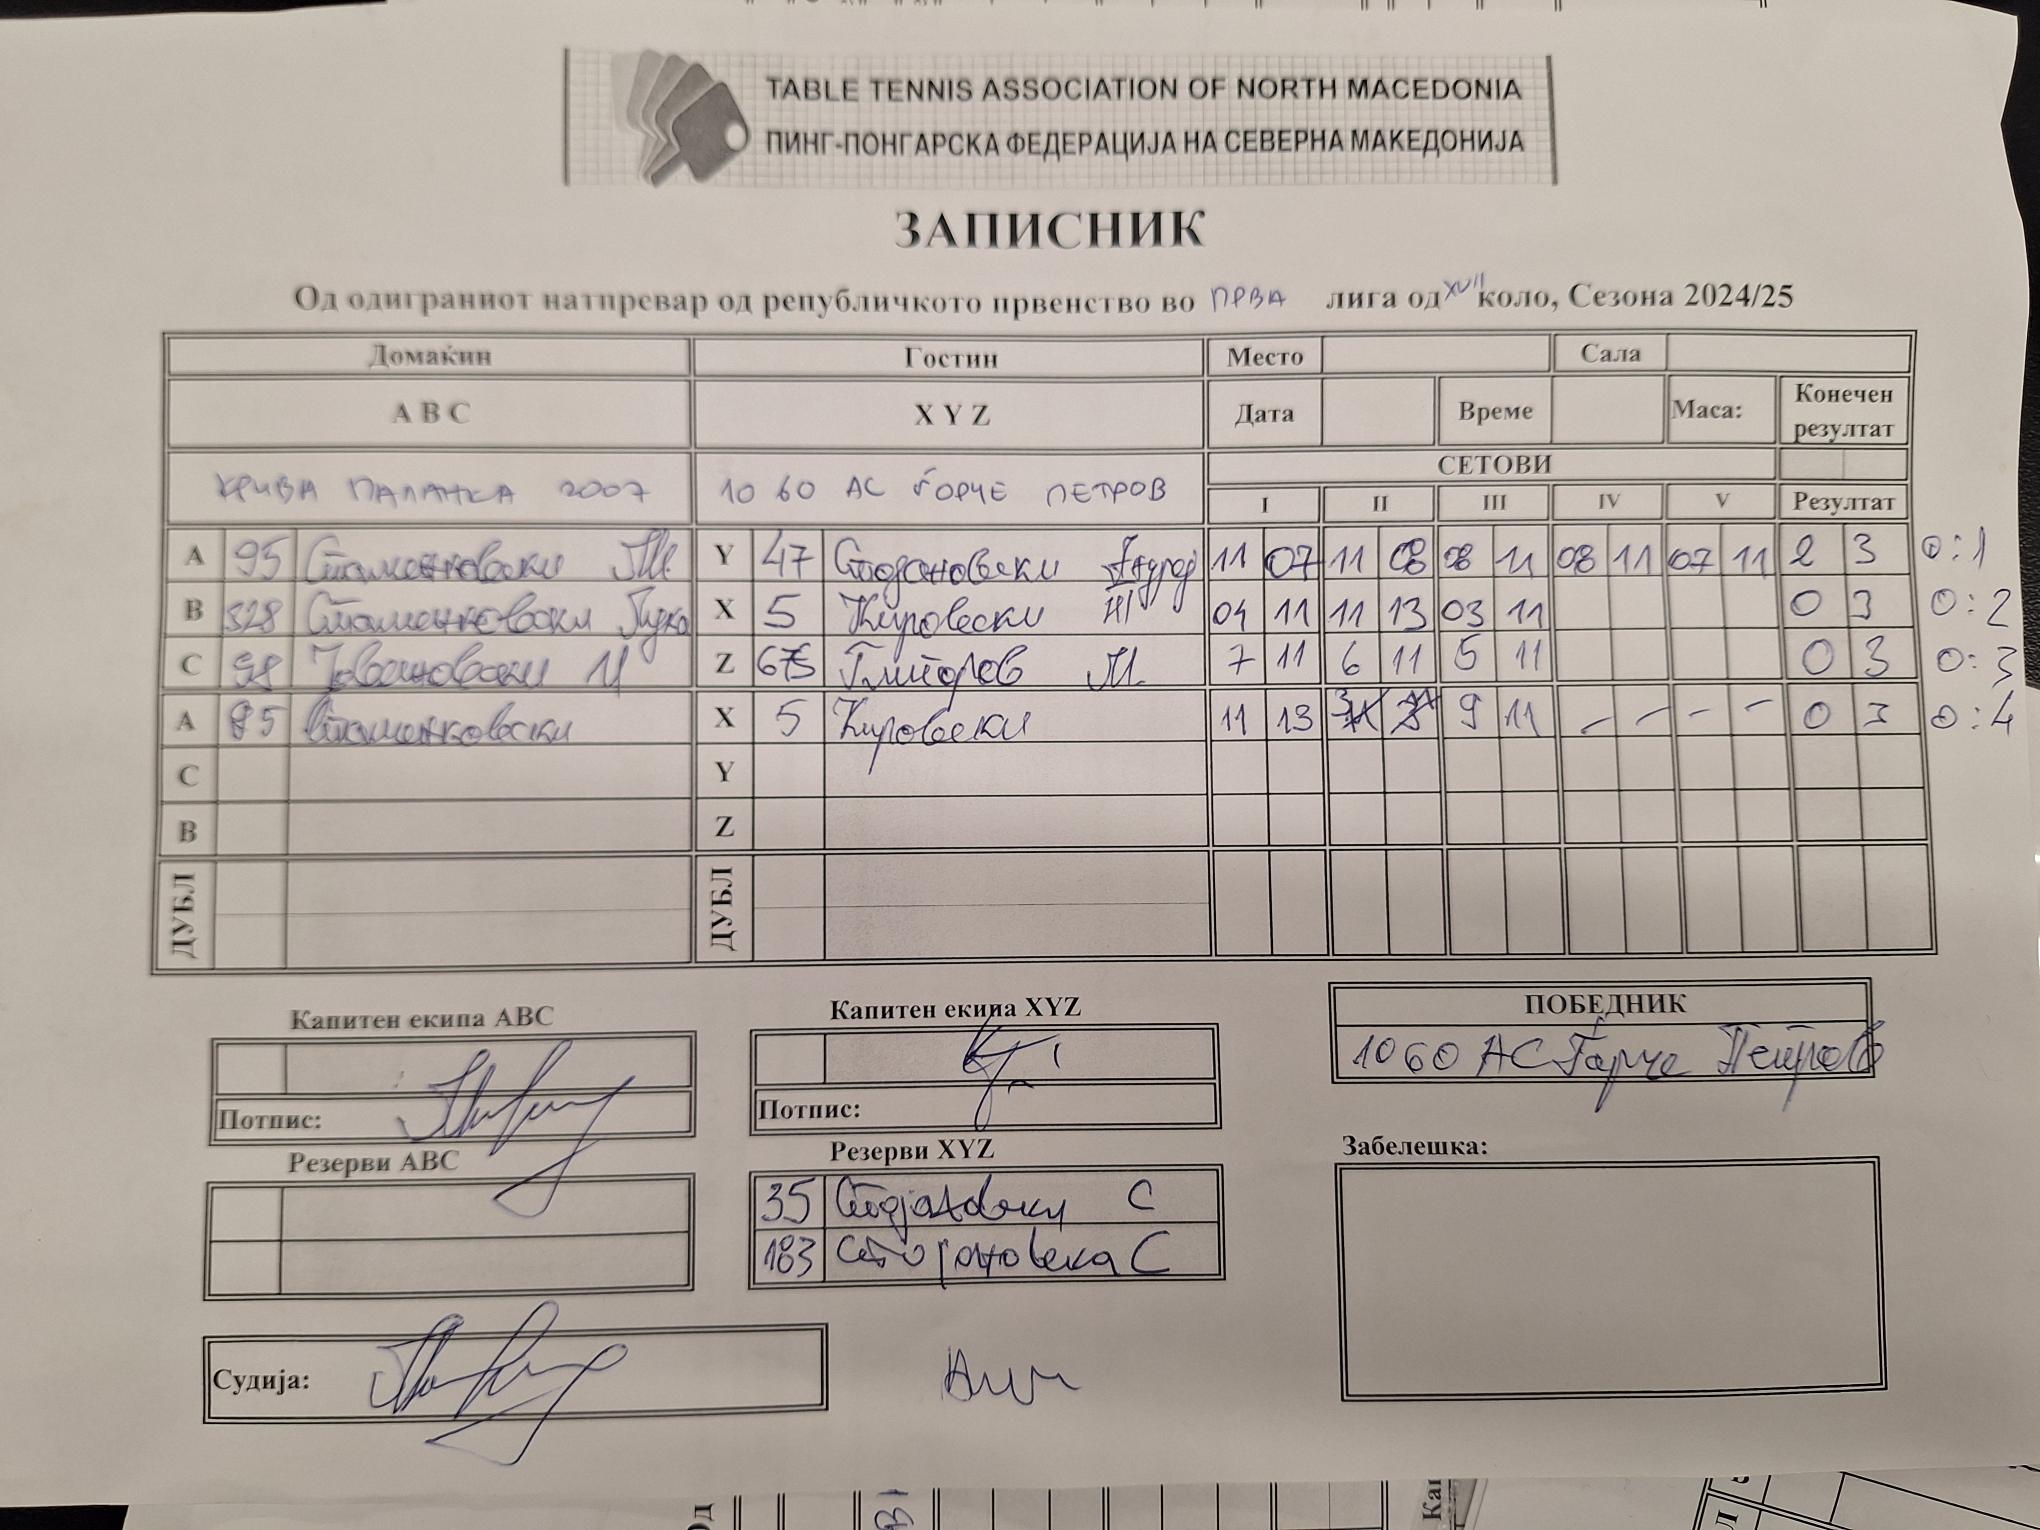 TABLE TENNIS ASSOCIATION OF NORTH MACEDONIA
ПИНГ-ПОНГАРСКА ФЕДЕРАЦИЈА НА СЕВЕРНА МАКЕДОНИЈА
ЗАПИСНИК
Од одиграниот натпревар од републичкото првенство во ПРВА лига од XVII коло, Сезона 2024/25
Домаќин Гостин Место Сала
A B C X Y Z Дата Време Маса: Конечен резултат
КРИВА ПАЛАНКА 2007 1060 АС ЃОРЧЕ ПЕТРОВ СЕТОВИ
I II III IV V Резултат
A 95 Стаменковски М. Y 47 Стојановски 11 07 11 08 08 11 08 11 07 11 2 3 0:1
B 328 Стаменковски Лука X 5 Кировски 04 11 11 13 03 11 0 3 0:2
C 98 Јовановски И Z Глигоров М. 7 11 6 11 5 11 0 3 0:3
A 95 Стаменковски X 5 Кировски 11 13 9 11 – – – – 0 3 0:4
C Y
B Z
ДУБЛ ДУБЛ
Капитен екипа ABC Капитен екипа XYZ ПОБЕДНИК
1060 АС Ѓорче Петров
Потпис: Потпис:
Резерви ABC Резерви XYZ Забелешка:
35 Стојановски С
183 Стојановска С
Судија: